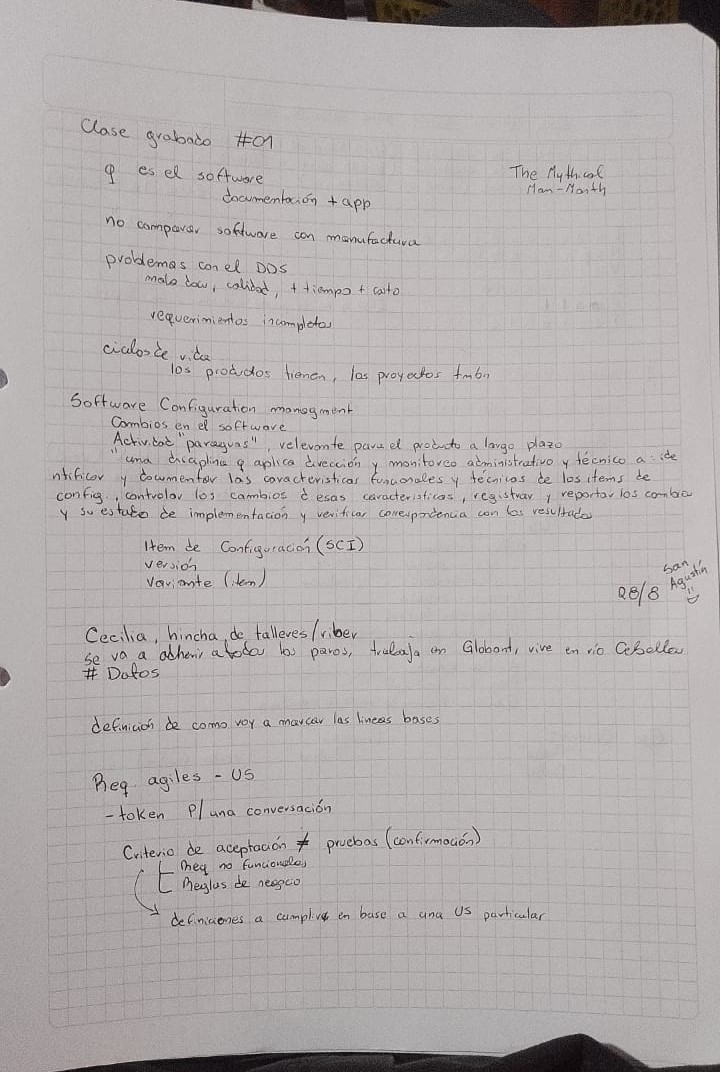 Clase grabado #01
q es el software
The Mythical
Man-Month
documentación + app
no comparar software con manufactura
problemas con el DDS
malo low, calidad, + tiempo + costo
requerimientos incompletos
ciclos de vida
los productos tienen, los proyectos tmbn
Software Configuration managment
Cambios en el software
Actividad "paraguas", relevante para el producto a largo plazo
"una disciplina q aplica dirección y monitoreo administrativo y técnico a: ide
ntificar y documentar las caracteristicas funcionales y técnicas de los items de
config., controlar los cambios d esas caracteristicas, registrar y reportar los cambios
y su estado de implementación y verificar correspondencia con los resultados
Item de Configuración (SCI)
version
Variante (item)
28/8 San
Agustín
Cecilia, hincha de talleres/riber
se va a adherir a todos los paros, trabaja en Globant, vive en rio Ceballos
# Datos
definición de como voy a marcar las lineas bases
Req. agiles - US
- token P/ una conversación
Criterio de aceptación ≠ pruebas (confirmación)
Req no funcionales
Reglas de negocio
definiciones a cumplir en base a una US particular